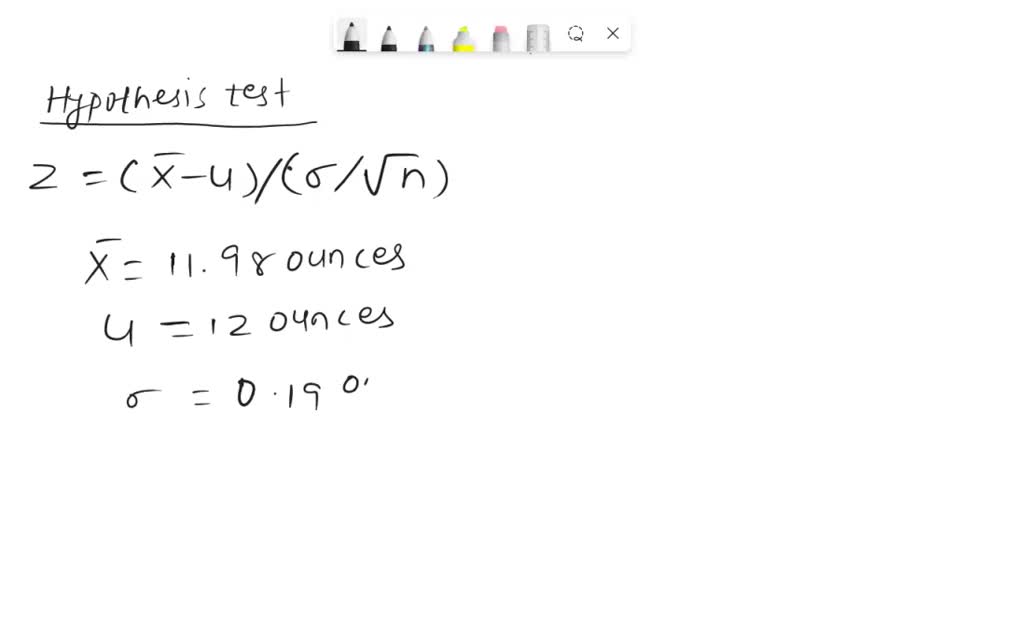 Hypothesis test
z = (x̄-u)/(σ/√n)
x̄ = 11.98 ounces
u = 12 ounces
σ = 0.19 o